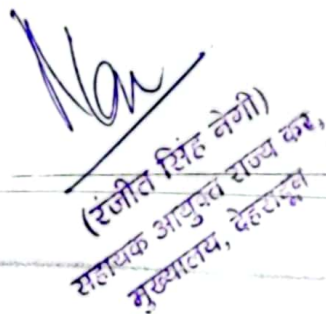 (रंजीत सिंह नेगी)
सहायक आयुक्त राज्य कर,
मुख्यालय, देहरादून